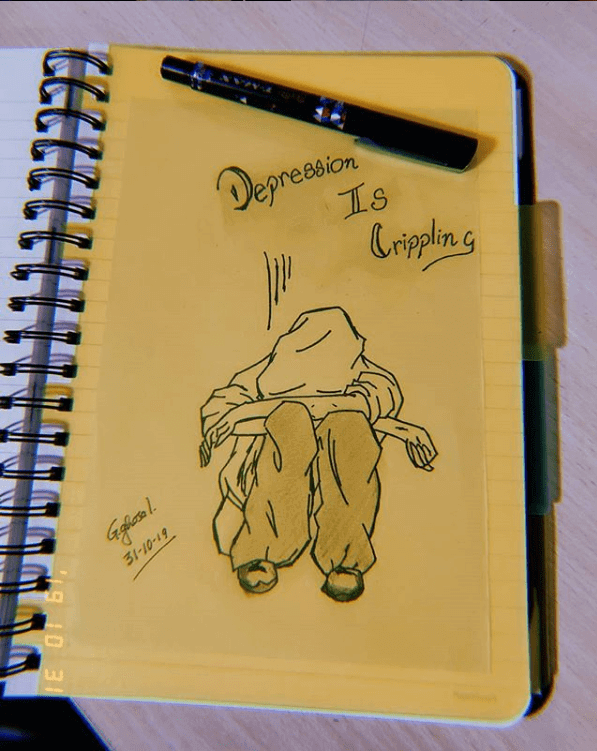 Depression
Is
Crippling
G.ghosal.
31-10-19
'19 10 31